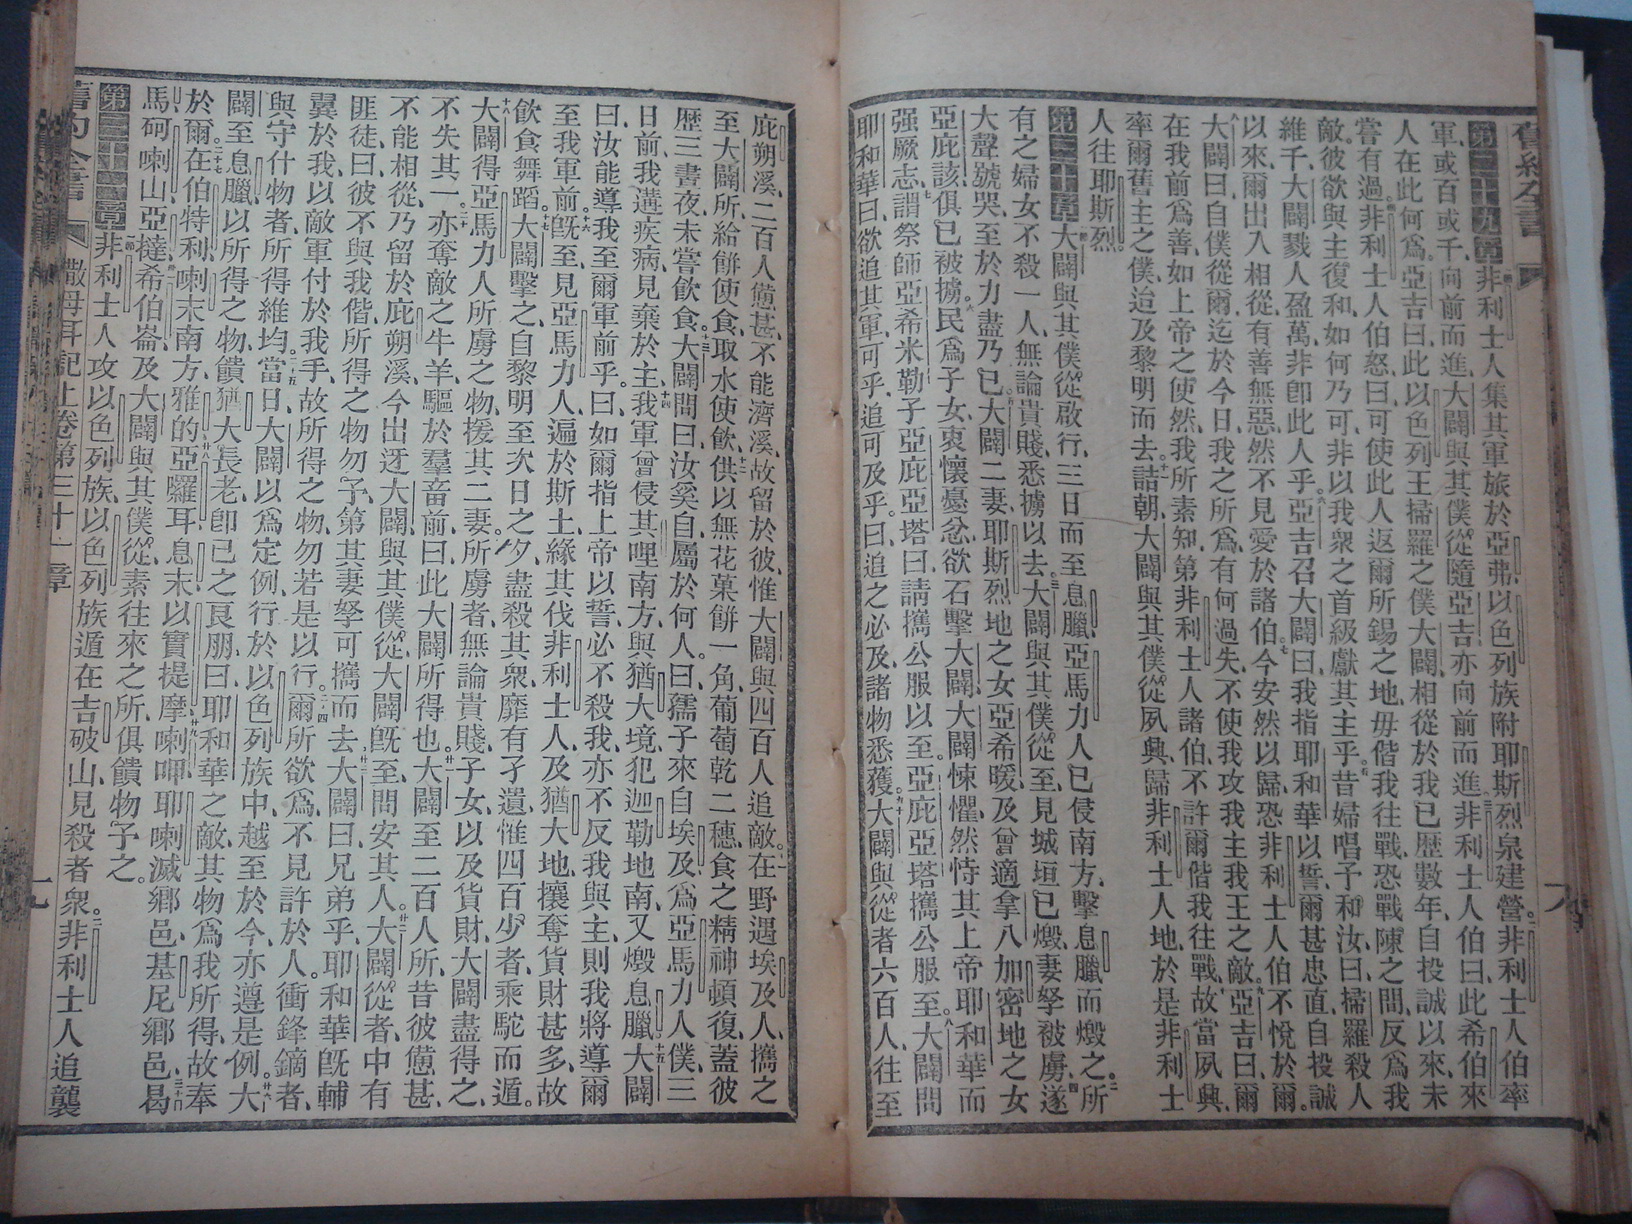 第二十九章非利士人集其軍旅於亞弗以色列族附耶斯烈泉建營非利士人伯率
軍或百或千向前而進大闢與其僕從隨亞吉亦向前而進非利士人伯曰此希伯來
人在此何爲亞吉曰此以色列王掃羅之僕大闢相從於我已歷數年自投誠以來未
嘗有過非利士人伯怒曰可使此人返爾所錫之地毋偕我往戰恐戰陳之間反爲我
敵彼欲與主復和如何乃可非以我衆之首級獻其主乎昔婦唱予和汝曰掃羅殺人
維千大闢戮人盈萬非卽此人乎亞吉召大闢曰我指耶和華以誓爾甚忠直自投誠
以來爾出入相從有善無惡然不見愛於諸伯今安然以歸恐非利士人伯不悅於爾
大闢曰自僕從爾迄於今日我之所爲有何過失不使我攻我主我王之敵亞吉曰爾
在我前爲善如上帝之使然我所素知第非利士人諸伯不許爾偕我往戰故當夙興
率爾舊主之僕迨及黎明而去詰朝大闢與其僕從夙興歸非利士人地於是非利士
人往耶斯烈
第三十章大闢與其僕從啟行三日而至息臘亞馬力人已侵南方擊息臘而燬之所
有之婦女不殺一人無論貴賤悉擄以去大闢與其僕從至見城垣已燬妻孥被虜遂
大聲號哭至於力盡乃已大闢二妻耶斯烈地之女亞希暖及曾適拿八加密地之女
亞庇該俱已被擄民爲子女衷懷憂忿欲石擊大闢大闢悚懼然恃其上帝耶和華而
强厥志謂祭師亞希米勒子亞庇亞塔曰請攜公服以至亞庇亞塔攜公服至大闢問
耶和華曰欲追其軍可乎追可及乎曰追之必及諸物悉獲大闢與從者六百人往至
庇朔溪二百人憊甚不能濟溪故留於彼惟大闢與四百人追敵在野遇埃及人攜之
至大闢所給餠使食取水使飲供以無花菓餠一角葡萄乾二穗食之精神頓復蓋彼
歷三晝夜未嘗飲食大闢問曰汝奚自屬於何人曰孺子來自埃及爲亞馬力人僕三
日前我遘疾病見棄於主我軍曾侵其哩南方與猶大境犯迦勒地南又燬息臘大闢
曰汝能導我至爾軍前乎曰如爾指上帝以誓必不殺我亦不反我與主則我將導爾
至我軍前旣至見亞馬力人遍於斯土緣其伐非利士人及猶大地攘奪貨財甚多故
飲食舞蹈大闢擊之自黎明至次日之夕盡殺其衆靡有孑遺惟四百少者乘駝而遁
大闢得亞馬力人所虜之物援其二妻所虜者無論貴賤子女以及貨財大闢盡得之
不失其一亦奪敵之牛羊驅於羣畜前曰此大闢所得也大闢至二百人所昔彼憊甚
不能相從乃留於庇朔溪今出迓大闢與其僕從大闢旣至問安其人大闢從者中有
匪徒曰彼不與我偕所得之物勿予第其妻孥可攜而去大闢曰兄弟乎耶和華旣輔
翼於我以敵軍付於我手故所得之物勿若是以行爾所欲爲不見許於人衝鋒鏑者
與守什物者所得維均當日大闢以爲定例行於以色列族中越至於今亦遵是例大
闢至息臘以所得之物饋猶大長老卽己之良朋曰耶和華之敵其物爲我所得故奉
於爾在伯特利喇末南方雅的亞囉耳息末以實提摩喇呷耶喇滅鄉邑基尼鄉邑曷
馬砢喇山亞撻希伯崙及大闢與其僕從素往來之所俱饋物予之
第三十一章非利士人攻以色列族以色列族遁在吉破山見殺者衆非利士人追襲
撒母耳記上卷第三十一章